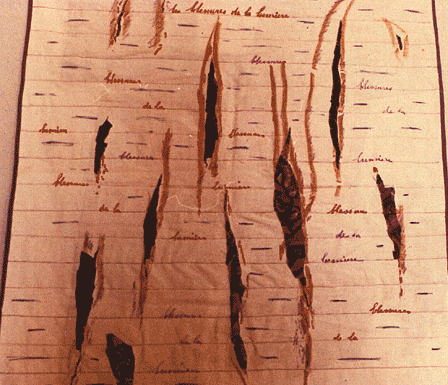 les blessures de la lumière
blessures
blessures
blessures
de la
de la
lumière
blessures
blessures
lumière
blessures
lumière
de la
blessures
lumière
de la
lumière
blessures
blessures
de la
de la
lumière